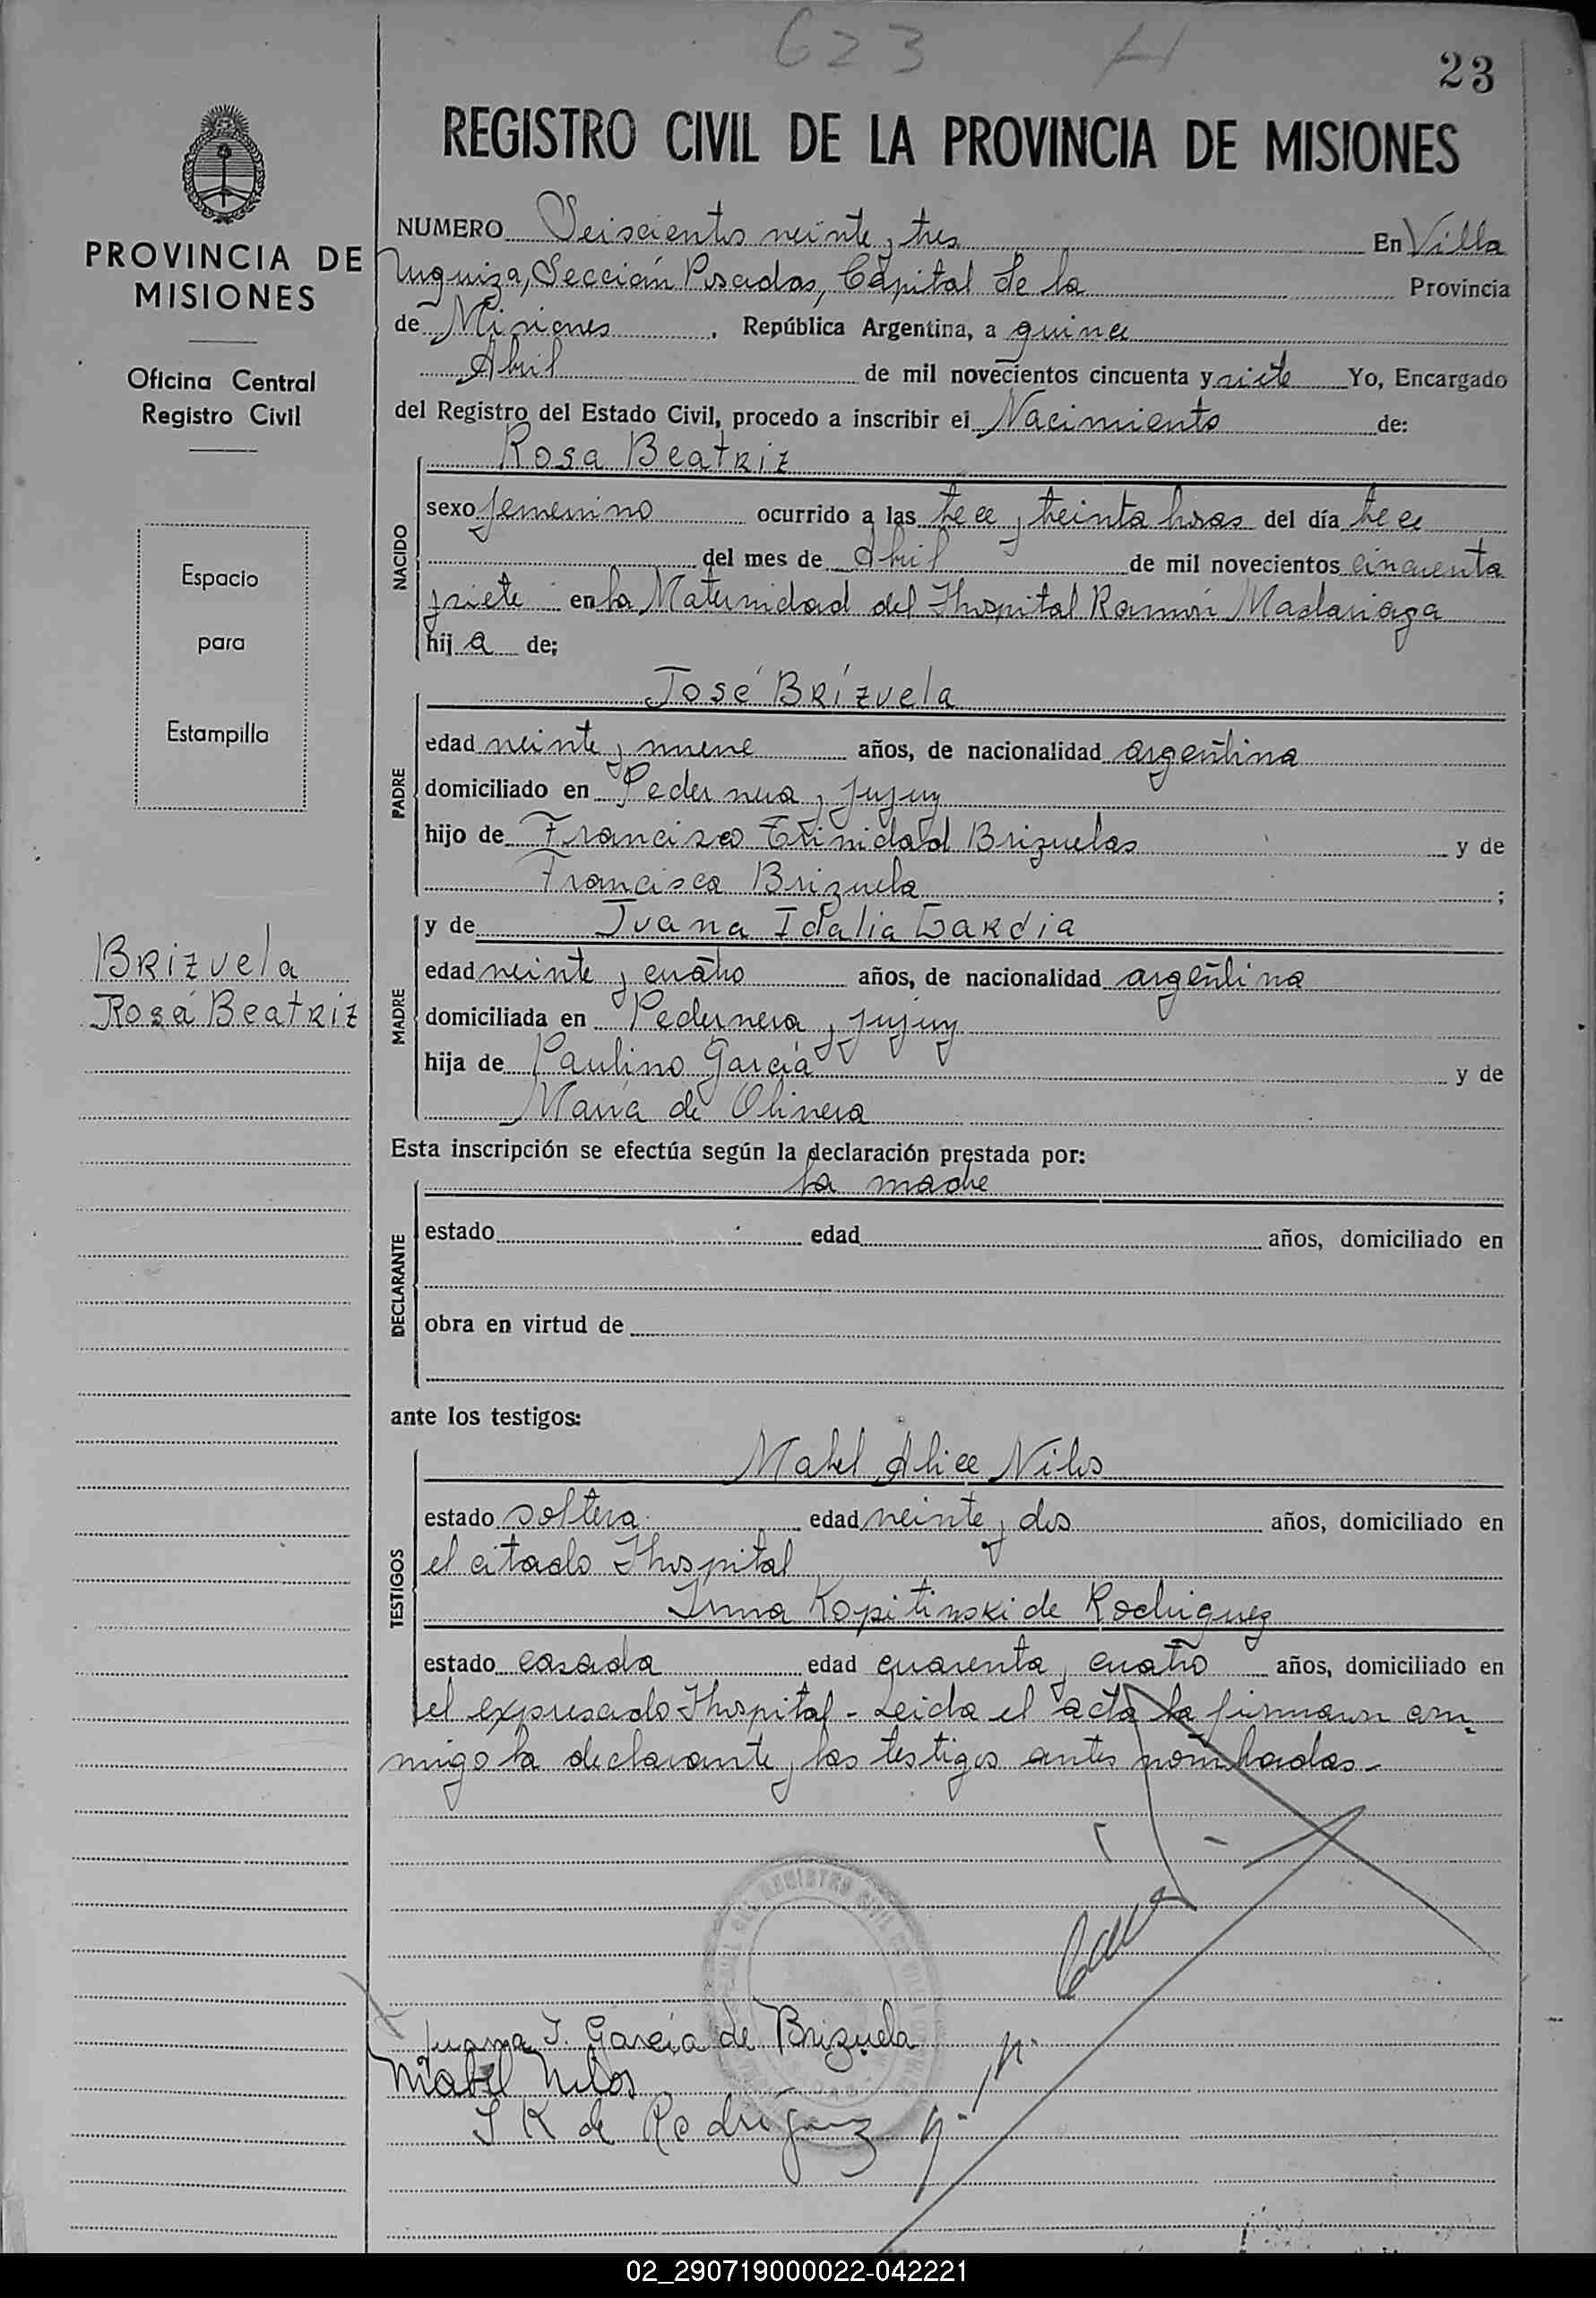 623 H
23
REGISTRO CIVIL DE LA PROVINCIA DE MISIONES
PROVINCIA DE
MISIONES
Oficina Central
Registro Civil
Espacio
para
Estampilla
Brizuela
Rosa Beatriz
NUMERO Seiscientos veinte y tres En Villa
Urquiza, Sección Posadas, Capital de la Provincia
de Misiones, República Argentina, a quince
Abril de mil novecientos cincuenta y siete Yo, Encargado
del Registro del Estado Civil, procedo a inscribir el Nacimiento de:
NACIDO
Rosa Beatriz
sexo femenino ocurrido a las trece y treinta horas del día trece
del mes de Abril de mil novecientos cincuenta
y siete en la Maternidad del Hospital Ramón Madariaga
hij a de;
PADRE
José Brízuela
edad veinte y nueve años, de nacionalidad argentina
domiciliado en Pedernera y Jujuy
hijo de Francisco Trinidad Brizuelas y de
Francisca Brizuela ;
MADRE
y de Juana Idalia Gardia
edad veinte y cuatro años, de nacionalidad argentina
domiciliada en Pedernera y Jujuy
hija de Paulino García y de
María de Olivera
Esta inscripción se efectúa según la declaración prestada por:
DECLARANTE
la madre
estado edad años, domiciliado en
obra en virtud de
ante los testigos:
TESTIGOS
Mabel Alice Nilos
estado soltera edad veinte y dos años, domiciliado en
el citado Hospital
Irma Kopitinski de Rodriguez
estado casada edad cuarenta y cuatro años, domiciliado en
el expresado Hospital - Leida el acta la firmaron con
migo la declarante y los testigos antes nombradas -
Juana I. García de Brizuela
Mabel Nilos
I K de Rodríguez
02_290719000022-042221